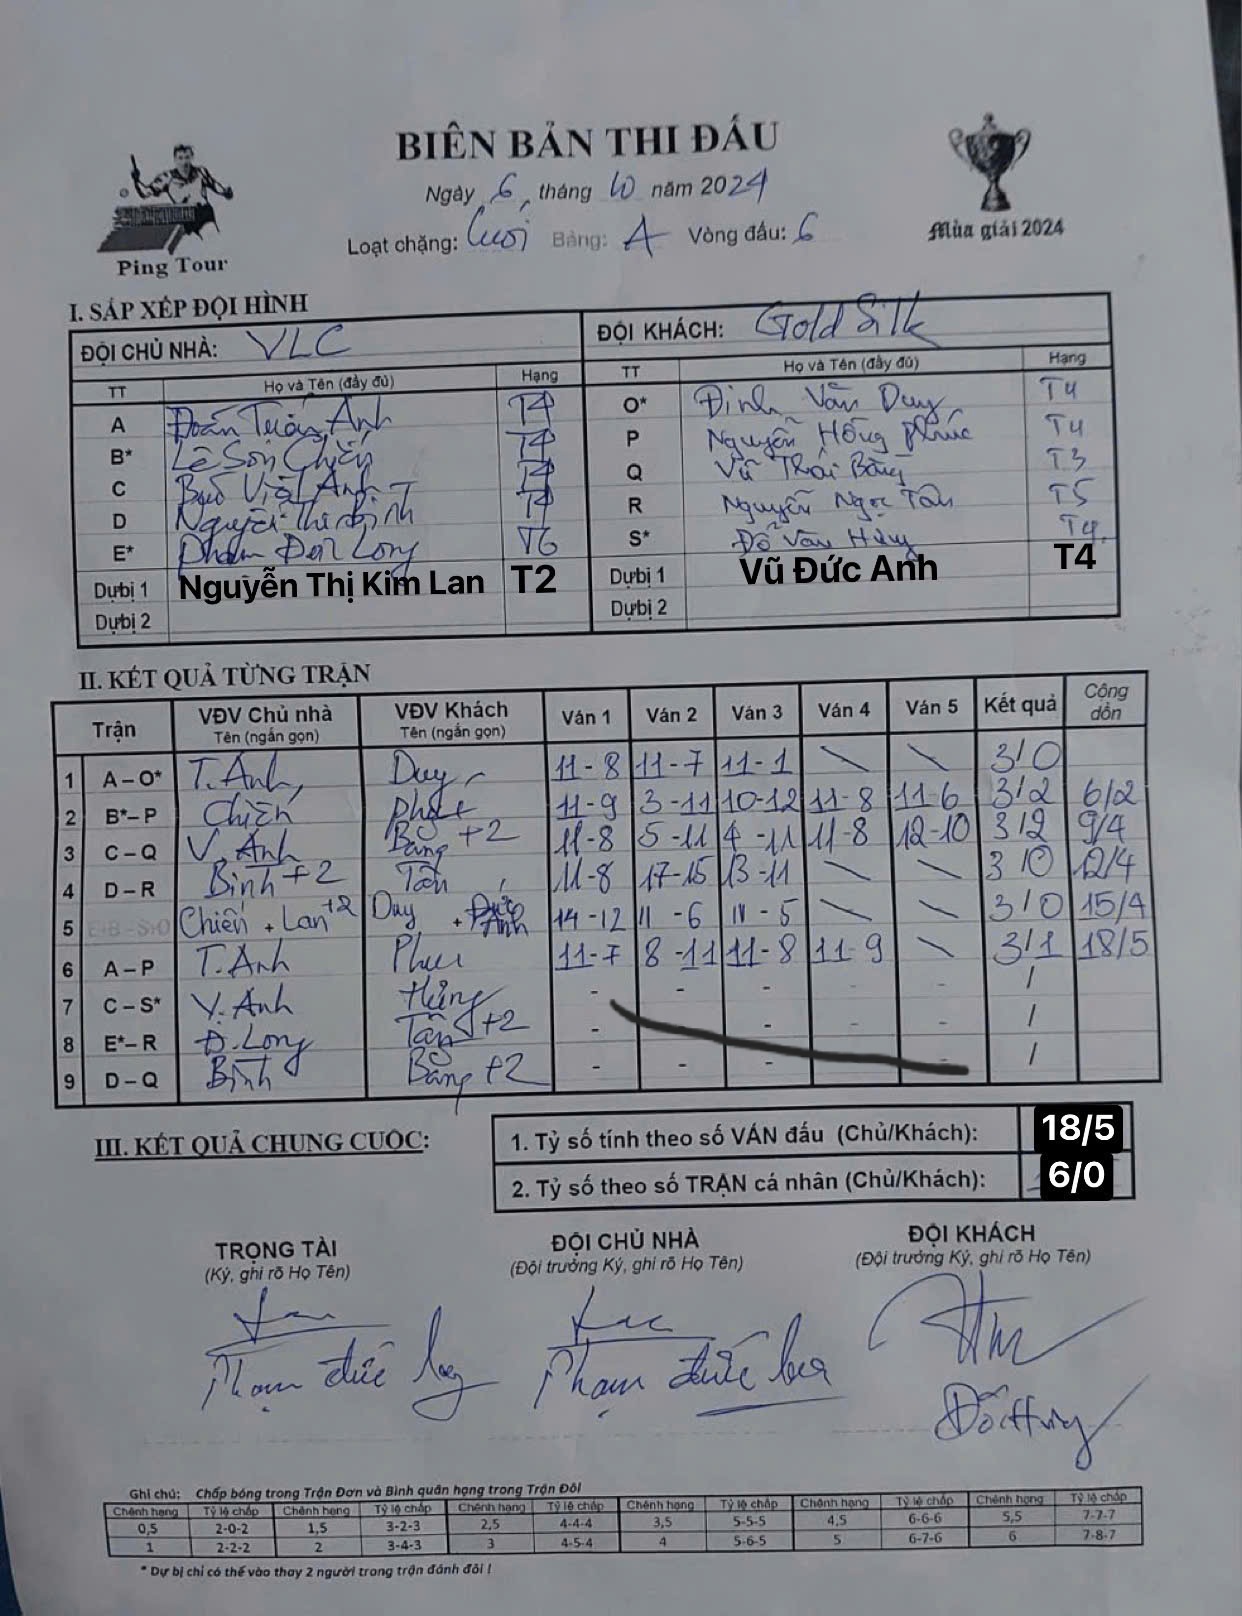 BIÊN BẢN THI ĐẤU
Ngày 6 tháng 10 năm 2024
Loạt chặng: Cuối Bảng: A Vòng đấu: 6
Ping Tour
Mùa giải 2024
I. SẮP XẾP ĐỘI HÌNH
ĐỘI CHỦ NHÀ: VLC ĐỘI KHÁCH: Gold Silk
TT Họ và Tên (đầy đủ) Hạng TT Họ và Tên (đầy đủ) Hạng
A Đoàn Tuấn Anh T4 O* Đinh Văn Duy T4
B* Lê Sơn Chiến T4 P Nguyễn Hồng Phúc T4
C Việt Anh T4 Q Vũ Thái Bằng T3
D Nguyễn Thị Bình T4 R Nguyễn Ngọc Tân T5
E* Phạm Đức Long T6 S* Đỗ Văn Hùng T4
Dự bị 1 Nguyễn Thị Kim Lan T2 Dự bị 1 Vũ Đức Anh T4
Dự bị 2 Dự bị 2
II. KẾT QUẢ TỪNG TRẬN
Trận VĐV Chủ nhà VĐV Khách Ván 1 Ván 2 Ván 3 Ván 4 Ván 5 Kết quả Cộng dồn
Tên (ngắn gọn) Tên (ngắn gọn)
1 A – O* T. Anh Duy 11-8 11-7 11-1 \ \ 3/0
2 B* – P Chiến Phúc 11-9 3-11 10-12 11-8 11-6 3/2 6/2
3 C – Q V. Anh Bằng +2 11-8 5-11 4-11 11-8 12-10 3/2 9/4
4 D – R Bình +2 Tân 11-8 17-15 13-11 \ \ 3/0 12/4
5 E+B - S+O Chiến + Lan +2 Duy + Đức Anh 14-12 11-6 11-5 \ \ 3/0 15/4
6 A – P T. Anh Phúc 11-7 8-11 11-8 11-9 \ 3/1 18/5
7 C – S* V. Anh Hùng - - - - - /
8 E* – R Đ. Long Tân +2 - - - - /
9 D – Q Bình Bằng +2 - - - - /
III. KẾT QUẢ CHUNG CUỘC:
1. Tỷ số tính theo số VÁN đấu (Chủ/Khách): 18/5
2. Tỷ số theo số TRẬN cá nhân (Chủ/Khách): 6/0
TRỌNG TÀI ĐỘI CHỦ NHÀ ĐỘI KHÁCH
(Ký, ghi rõ Họ Tên) (Đội trưởng Ký, ghi rõ Họ Tên) (Đội trưởng Ký, ghi rõ Họ Tên)
Phạm Đức Long Phạm Đức Long Đỗ Hùng
Ghi chú: Chấp bóng trong Trận Đơn và Bình quân hạng trong Trận Đôi
Chênh hạng Tỷ lệ chấp Chênh hạng Tỷ lệ chấp Chênh hạng Tỷ lệ chấp Chênh hạng Tỷ lệ chấp Chênh hạng Tỷ lệ chấp Chênh hạng Tỷ lệ chấp
0,5 2-0-2 1,5 3-2-3 2,5 4-4-4 3,5 5-5-5 4,5 6-6-6 5,5 7-7-7
1 2-2-2 2 3-4-3 3 4-5-4 4 5-6-5 5 6-7-6 6 7-8-7
* Dự bị chỉ có thể vào thay 2 người trong trận đánh đôi !